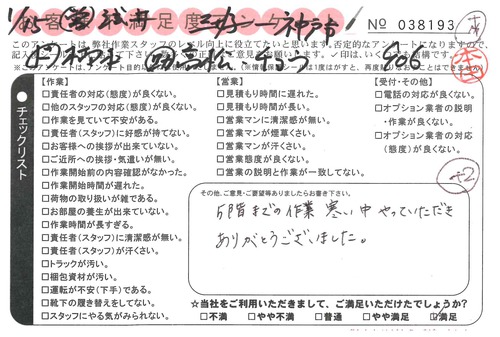 お客様満足度アンケート
№ 038193
このアンケートは、弊社作業スタッフのレベル向上に役立てたいと思います。
(本)
+2
チェックリスト
【作業】
□責任者の対応(態度)が良くない。
□他のスタッフの対応(態度)が良くない。
□作業を見ていて不安がある。
□責任者(スタッフ)に好感が持てない。
□お客様への挨拶が出来ていない。
□ご近所への挨拶・気遣いが無い。
□作業開始前の内容確認がなかった。
□作業開始時間が遅れた。
□荷物の取り扱いが雑である。
□お部屋の養生が出来ていない。
□作業時間が長すぎる。
□責任者(スタッフ)に清潔感が無い。
□責任者(スタッフ)が汗くさい。
□トラックが汚い。
□梱包資材が汚い。
□運転が不安(下手)である。
□靴下の履き替えをしてない。
□スタッフにやる気がみられない。
【営業】
□見積もり時間に遅れた。
□見積もり時間が長い。
□営業マンに清潔感が無い。
□営業マンが煙草くさい。
□営業マンが汗くさい。
□営業態度が良くない。
□営業の説明と作業が一致してない。
【受付・その他】
□電話の対応が良くない。
□オプション業者の説明
・作業が良くない。
□オプション業者の対応
(態度)が良くない。
その他、ご意見・ご要望等ありましたらお書き下さい。
5階までの作業 寒い中 やっていただき
ありがとうございました。
☆当社をご利用いただきまして、ご満足いただけたでしょうか?
□不満 □やや不満 □普通 □やや満足 ☑満足